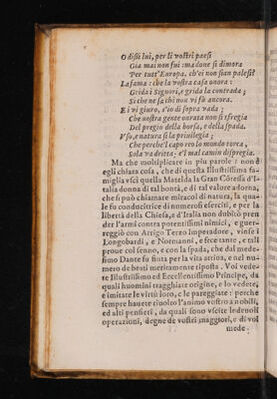 O dissi lui, per li vostri paesi
Gia mai non fui: ma doue si dimora
Per tutt'Europa, ch'ei non sian palesi?
La fama: che la vostra casa onora:
Grida i Signori, e grida la contrada;
Si che ne sa chi non vi fù ancora.
E i vi giuro, s'io di sopra vada;
Che nostra gente onrata non si sfregia
Del pregio della borsa, e della spada.
Vso, e natura si la priuilegia;
Che perche'l capo reo lo mondo torca,
Sola va dritta: e'l mal camin dispregia.
Ma che moltiplicare in piu parole: non è
egli chiara cosa, che di questa Illustrissima fa-
miglia vsci quella Matelda la Gran Côtessa d'I-
talia donna di tal bontà, e di tal valore adorna,
che si può chiamare miracol di natura, la qua-
le fu conducitrice di numerosi eserciti, e per la
libertà della Chiesa, e d'Italia non dubitò pren
der l'armi contra potentissimi nimici, e guer-
reggiò con Arrigo Terzo Imperadore, vinse i
Longobardi, e Normanni, e fece tante, e tali
proue col senno, e con la spada, che dal mede-
simo Dante fu finta per la vita attiua, e nel nu-
mero de beati meritamente riposta. Voi vede-
te Illustrissimo ed Eccellentissimo Principe, da
quali huomini traggiate origine, e lo vedete,
e imitate le virtù loro, e le pareggiate: perche
sempre hauete riuolto l'animo vostro a nobili,
ed alti pensieri, da quali sono vscite lodeuoli
operazioni, degne de vostri maggiori, e di voi
mede-